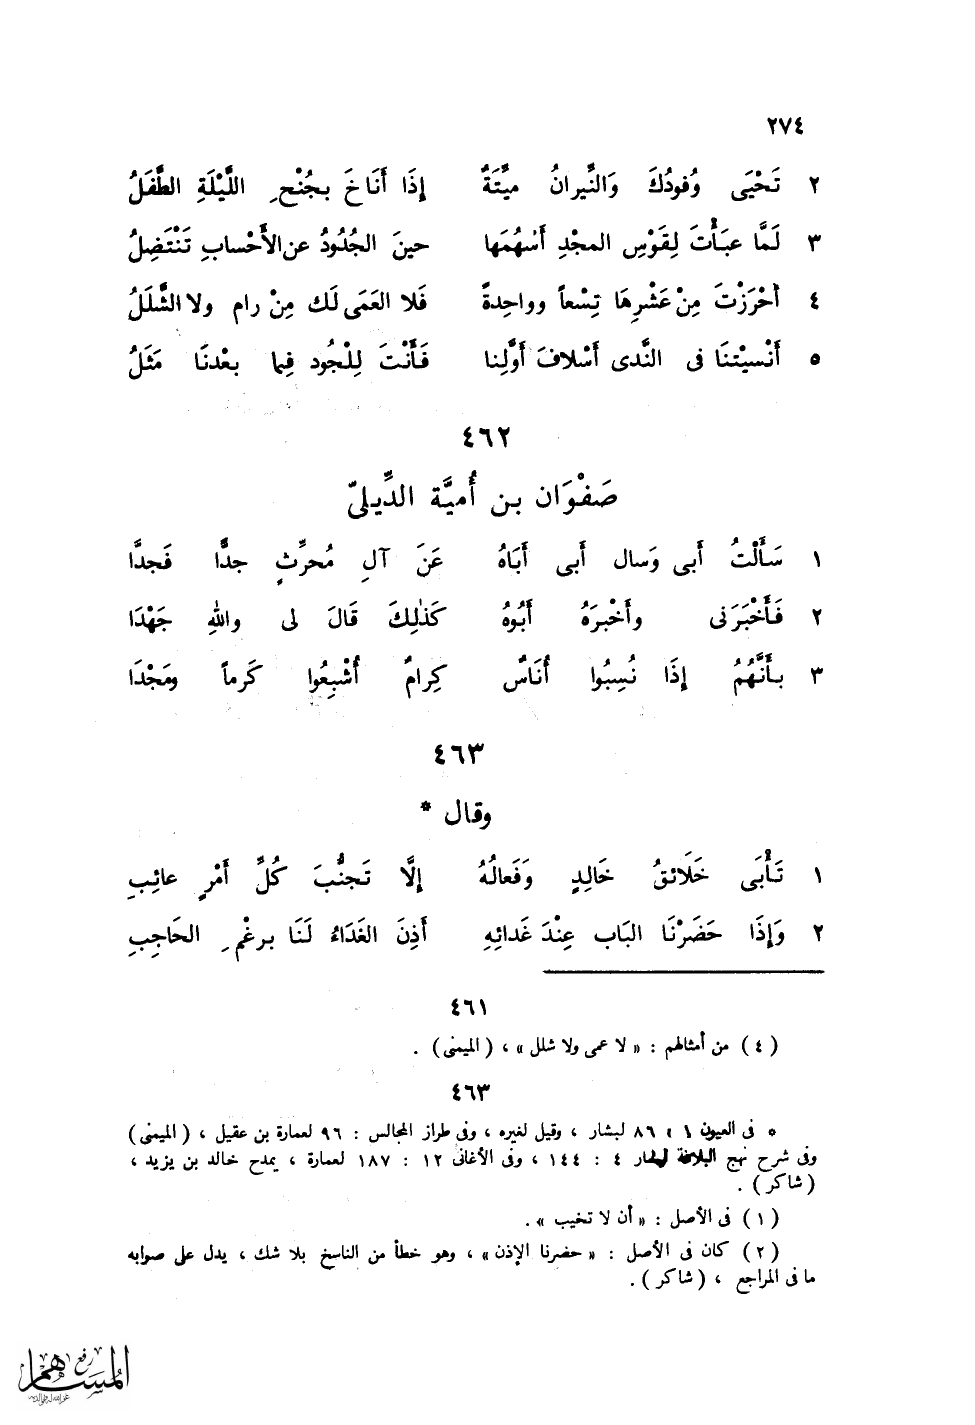 ٢٧٤
٢ تَحْيَى وُفودُكَ وَالنِّيرانُ ميِّتَةٌ إِذَا أَنَاخَ بِجُنْحِ اللَّيْلَةِ الطَّفَلُ
٣ لَمَّا عبَأْتَ لِقَوْسِ المجْدِ أَسْهُمَها حينَ الجُدُودُ عن الأَحْسابِ تَنْتَضِلُ
٤ أَحْرَزْتَ مِنْ عَشْرِهَا تِسْعاً وواحِدةً فَلا العَمَى لَكَ مِنْ رامٍ ولا الشَّلَلُ
٥ أَنْسيْتنَا فى النَّدى أَسْلافَ أَوَّلِنا فَأَنْتَ لِلْجُودِ فِيما بعْدنَا مَثَلُ
٤٦٢
صَفْوَان بن أُميَّة الدِّيلىّ
١ سَأَلْتُ أَبى وَسال أَبى أَبَاهُ عَنَ آلِ مُحرِّثٍ جدًّا فَجدَّا
٢ فَأَخْبَرَنى وأَخْبرَهُ أَبُوهُ كَذٰلِكَ قَالَ لى واللهِ جَهْدَا
٣ بأَنَّهُمُ إِذَا نُسِبُوا أُنَاسٌ كِرامٌ أُشْبِعُوا كَرماً ومَجْدَا
٤٦٣
وقال *
١ تَأْبَى خَلَائقُ خَالِدٍ وَفَعالُهُ إِلَّا تَجنُّبَ كُلِّ أَمْرٍ عائِبِ
٢ وَإِذَا حَضَرْنَا البَاب عِنْدَ غَدائِهِ أَذِنَ الغَدَاءُ لَنَا برغْمِ الحَاجِبِ
٤٦١
( ٤ ) من أمثالهم : « لا عمى ولا شلل » ، ( الميمنى ) .
٤٦٣
* فى العيون ١ ، ٨٦ لبشار ، وقيل لغيره ، وفى طراز المجالس : ٩٦ لعمارة بن عقيل ، ( الميمنى )
وفى شرح نهج البلاغة لبشار ٤ : ١٤٤ ، وفى الأغانى ١٢ : ١٨٧ لعمارة ، يمدح خالد بن يزيد ،
( شاكر ) .
( ١ ) فى الأصل : « أن لا تخيب » .
( ٢ ) كان فى الأصل : « حضرنا الإذن » ، وهو خطأ من الناسخ بلا شك ، يدل على صوابه
ما فى المراجع ، ( شاكر ) .
رفع
المساهم